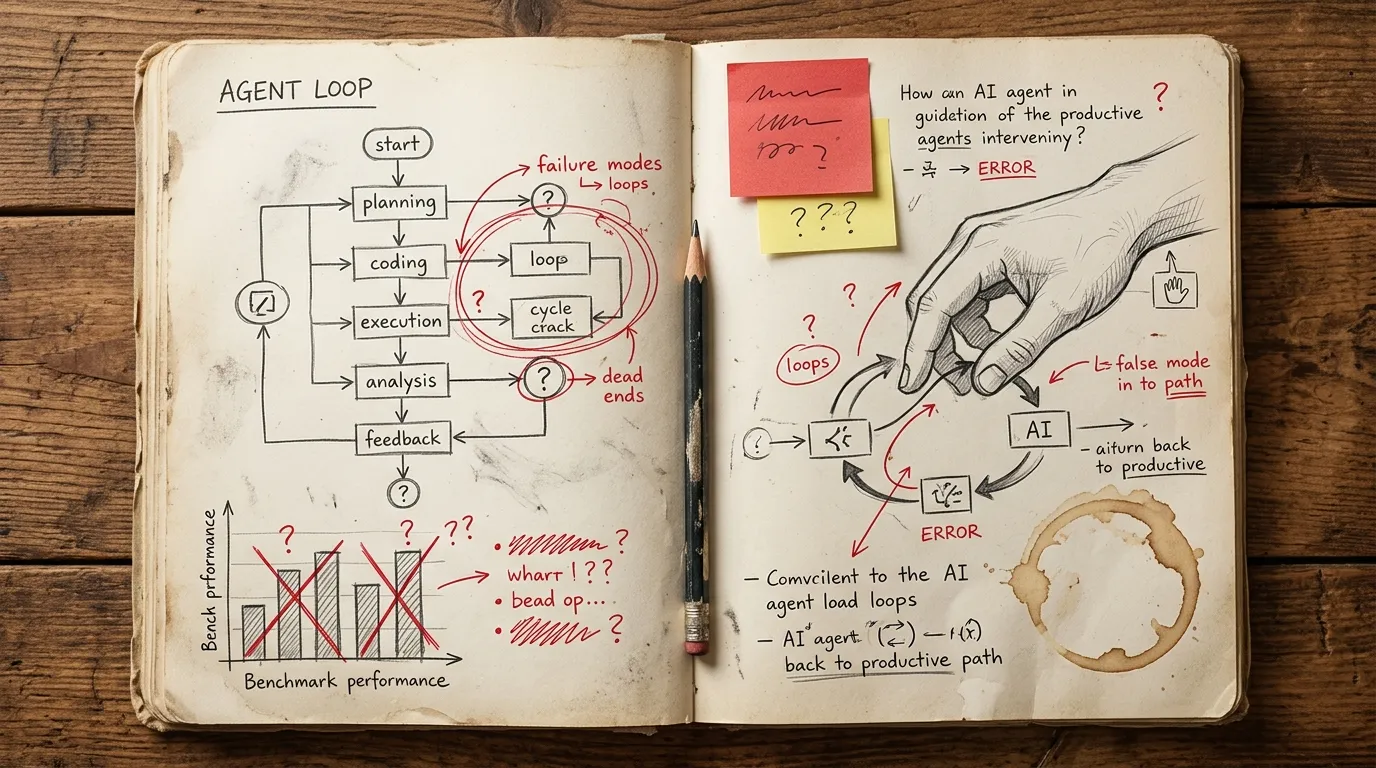 AGENT LOOP
start
planning
coding
execution
analysis
feedback
?
failure modes
loops
?
loop
cycle
crack
?
?
dead
ends
Bench prformance
Benchmark performance
?
?
??
?
whart ! ??
bead op...
?
?
???
How can AI agent in
guidetion of the productive
agents interveniny?
?
→ ERROR
?
?
loops
false mode
in to path
?
AI
ERROR
– aiturn back
to productive
– Comvcilent to the AI
agent load loops
– AI agent
back to productive path